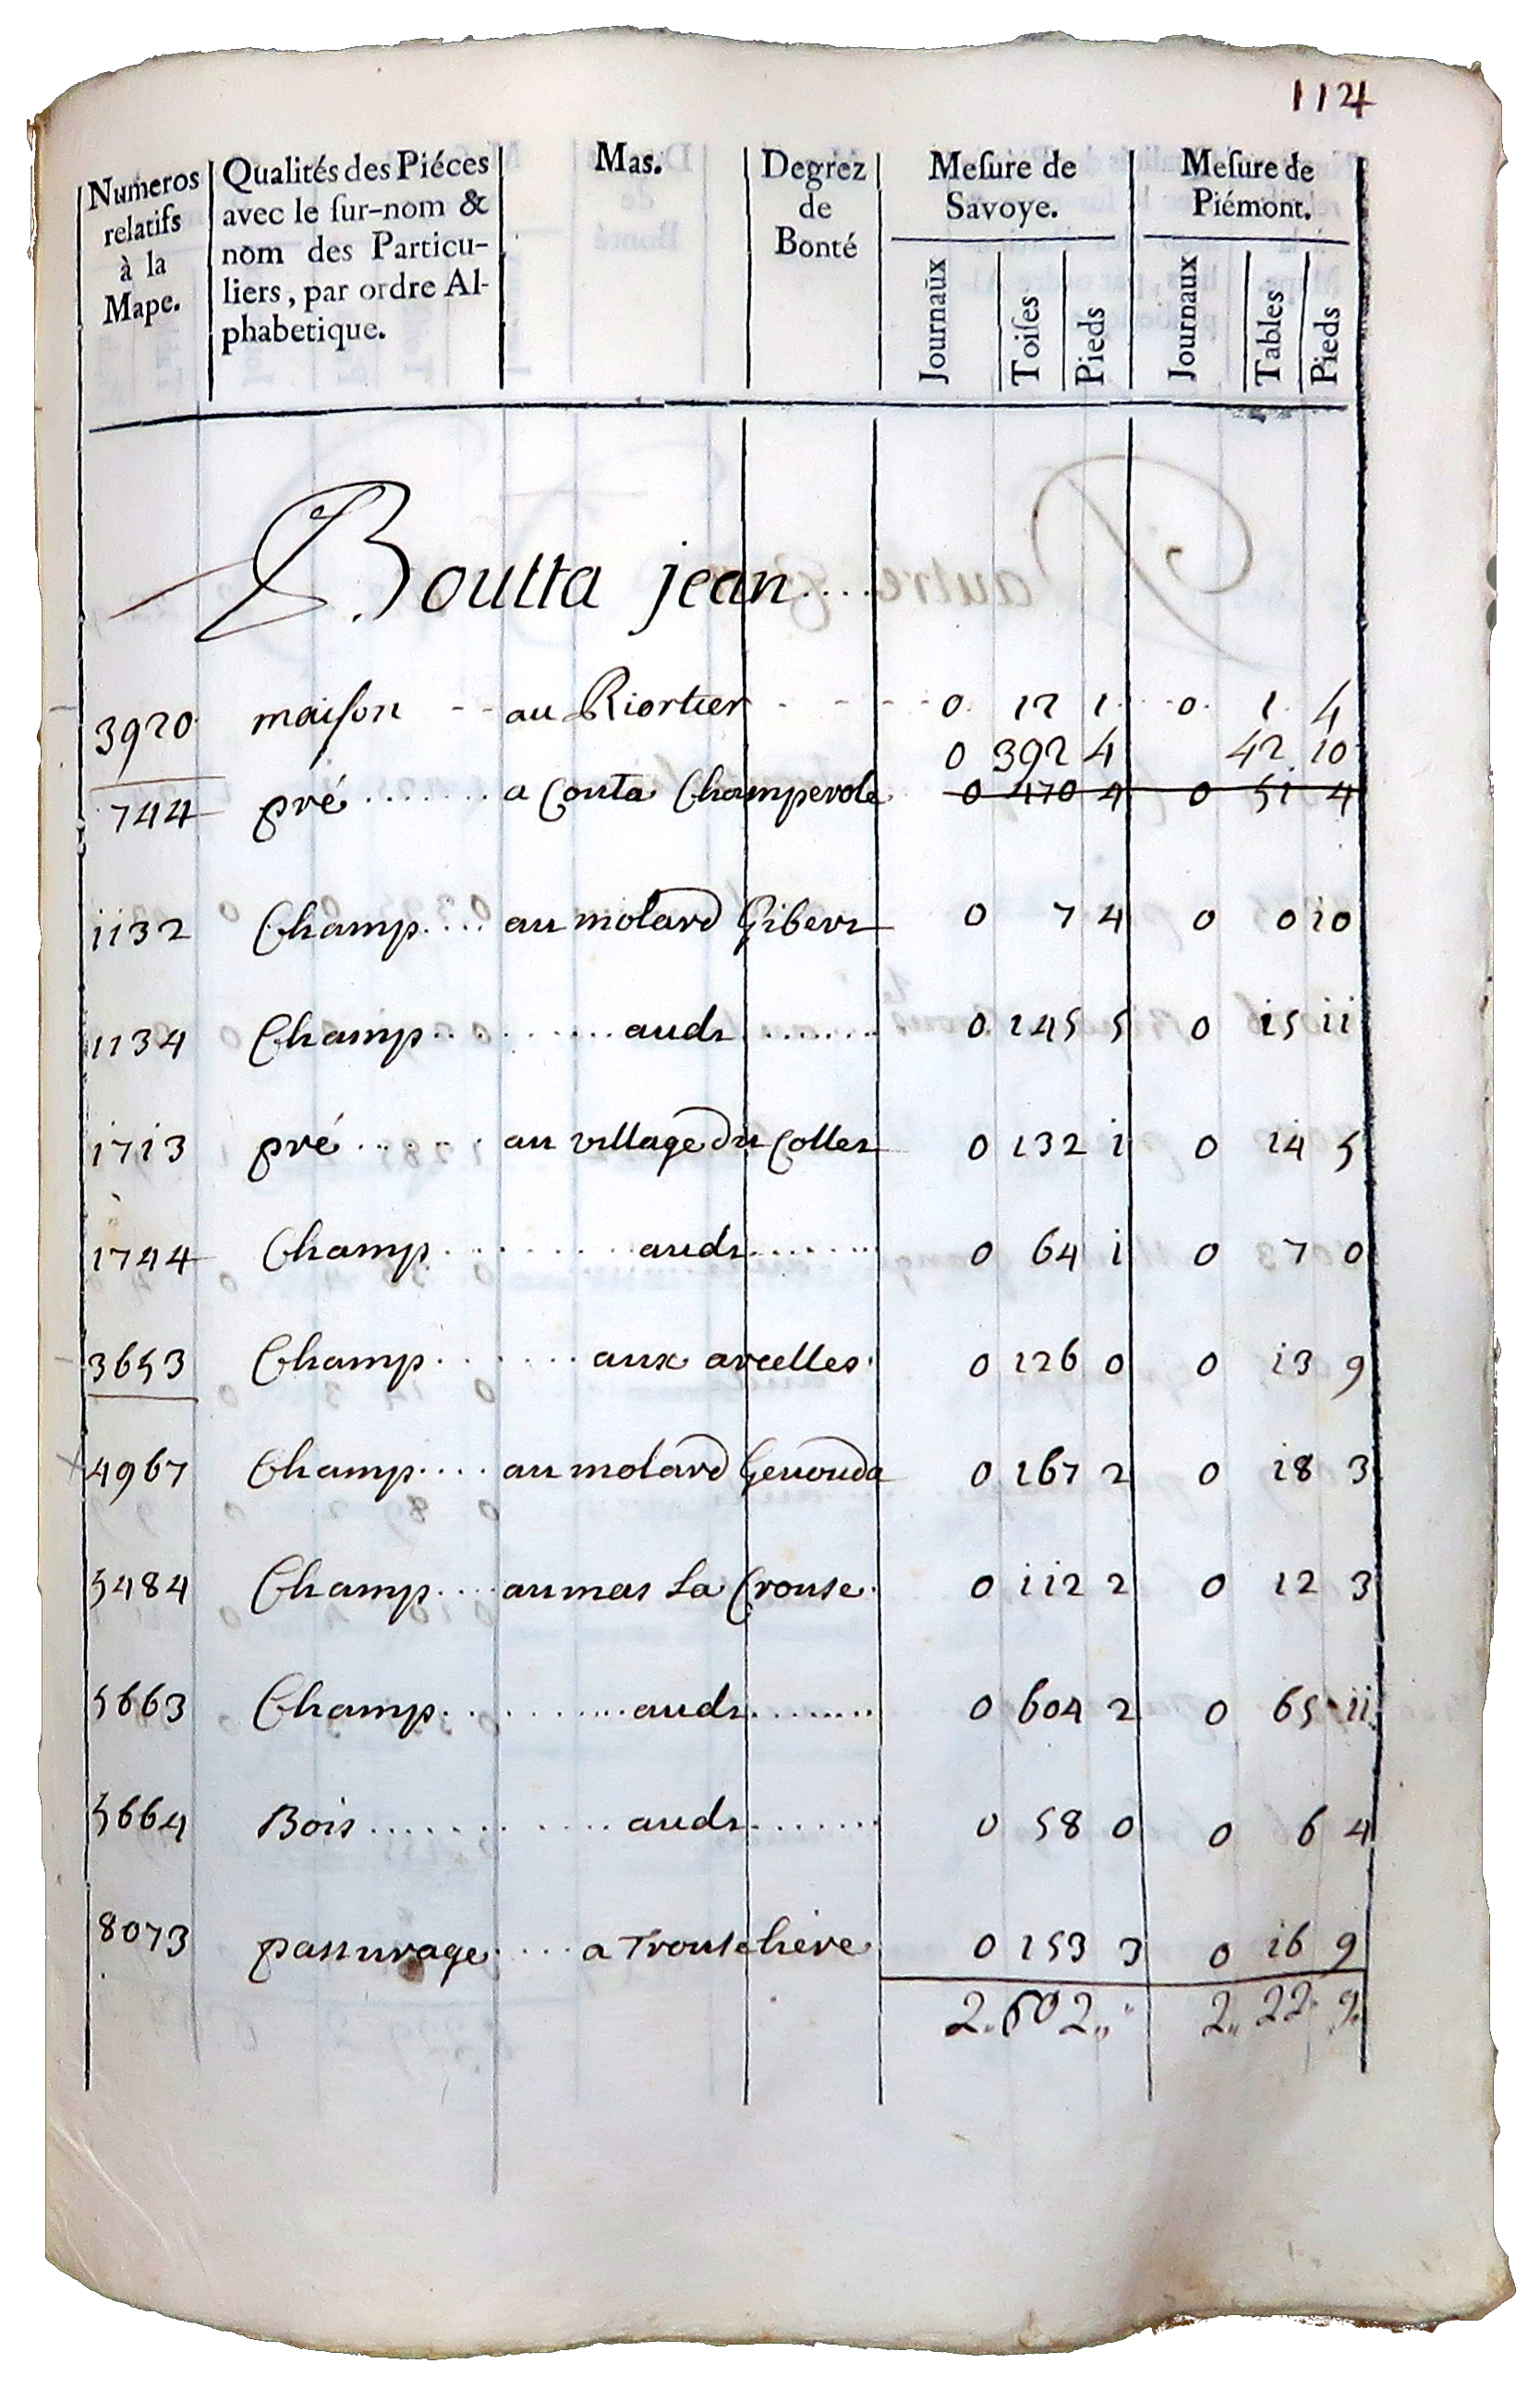 114
Numeros relatifs à la Mape. Qualités des Piéces avec le ſur-nom & nom des Particu-liers, par ordre Al-phabetique. Mas. Degrez de Bonté Meſure de Savoye. Meſure de Piémont.
Journaux Toiſes Pieds Journaux Tables Pieds
Boutta jean....
3920 maiſon au Riortier 0 12 1 0 1 4
0 392 4 42 10
744 pré a Conta Champerole 0 470 4 0 51 4
1132 Champ au molard Giber 0 7 4 0 0 10
1134 Champ audt 0 145 5 0 15 11
1713 pré au village du Collet 0 132 1 0 14 5
1744 Champ audt 0 64 1 0 7 0
3653 Champ aux arcelles 0 126 0 0 13 9
4967 Champ au molard Genouda 0 167 2 0 18 3
5484 Champ au mas La Crouse 0 112 2 0 12 3
5663 Champ audt 0 604 2 0 65 11
5664 Bois audt 0 58 0 0 6 4
8073 pasturage a Trouschere 0 153 3 0 16 9
2 2 22 9